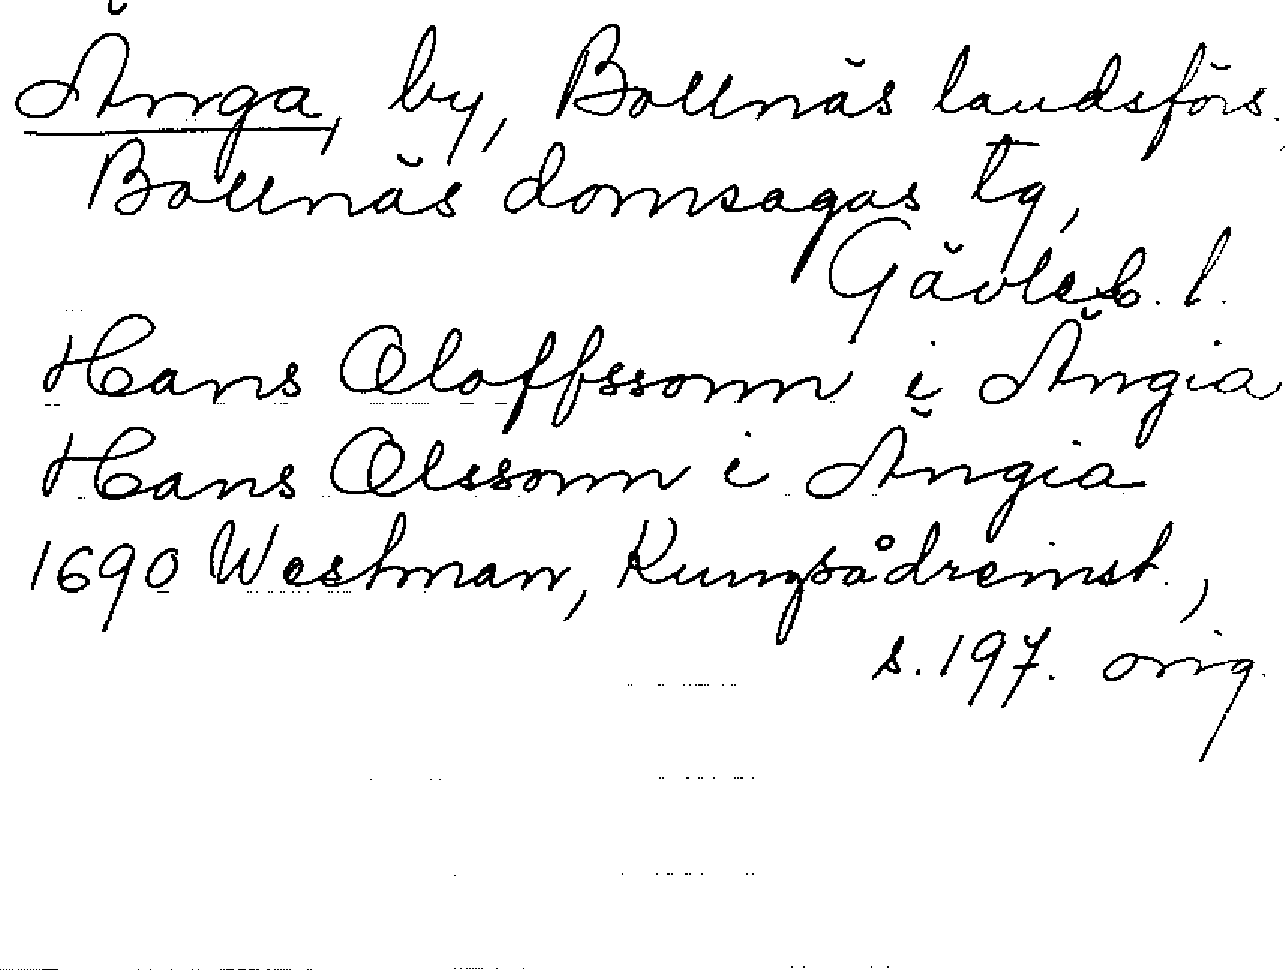 Änga, by, Bollnäs landsförs.
Bollnäs domsagas tg,
Gävleb. l.
Hans Oloffssonn i Ängia
Hans Olssonn i Ängia
1690 Westman, Kungsådremst.,
s. 197. orig.